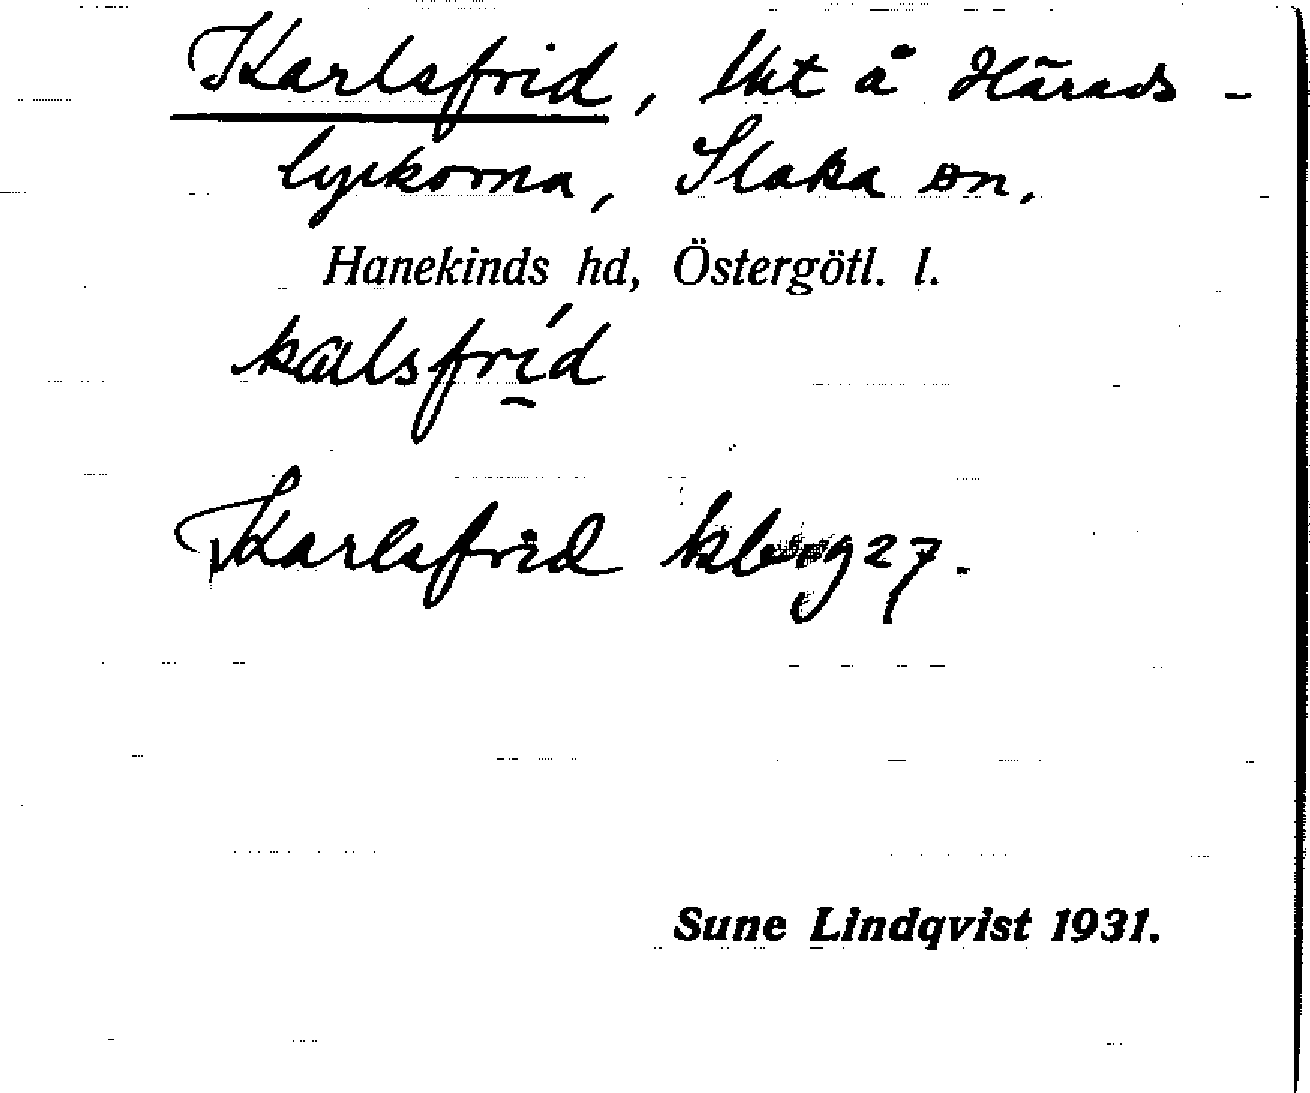 Karlsfrid, lht å Härads-
lyckorna, Slaka sn,
Hanekinds hd, Östergötl. l.
kalsfríd
Karlsfrid kb 1927.
Sune Lindqvist 1931.